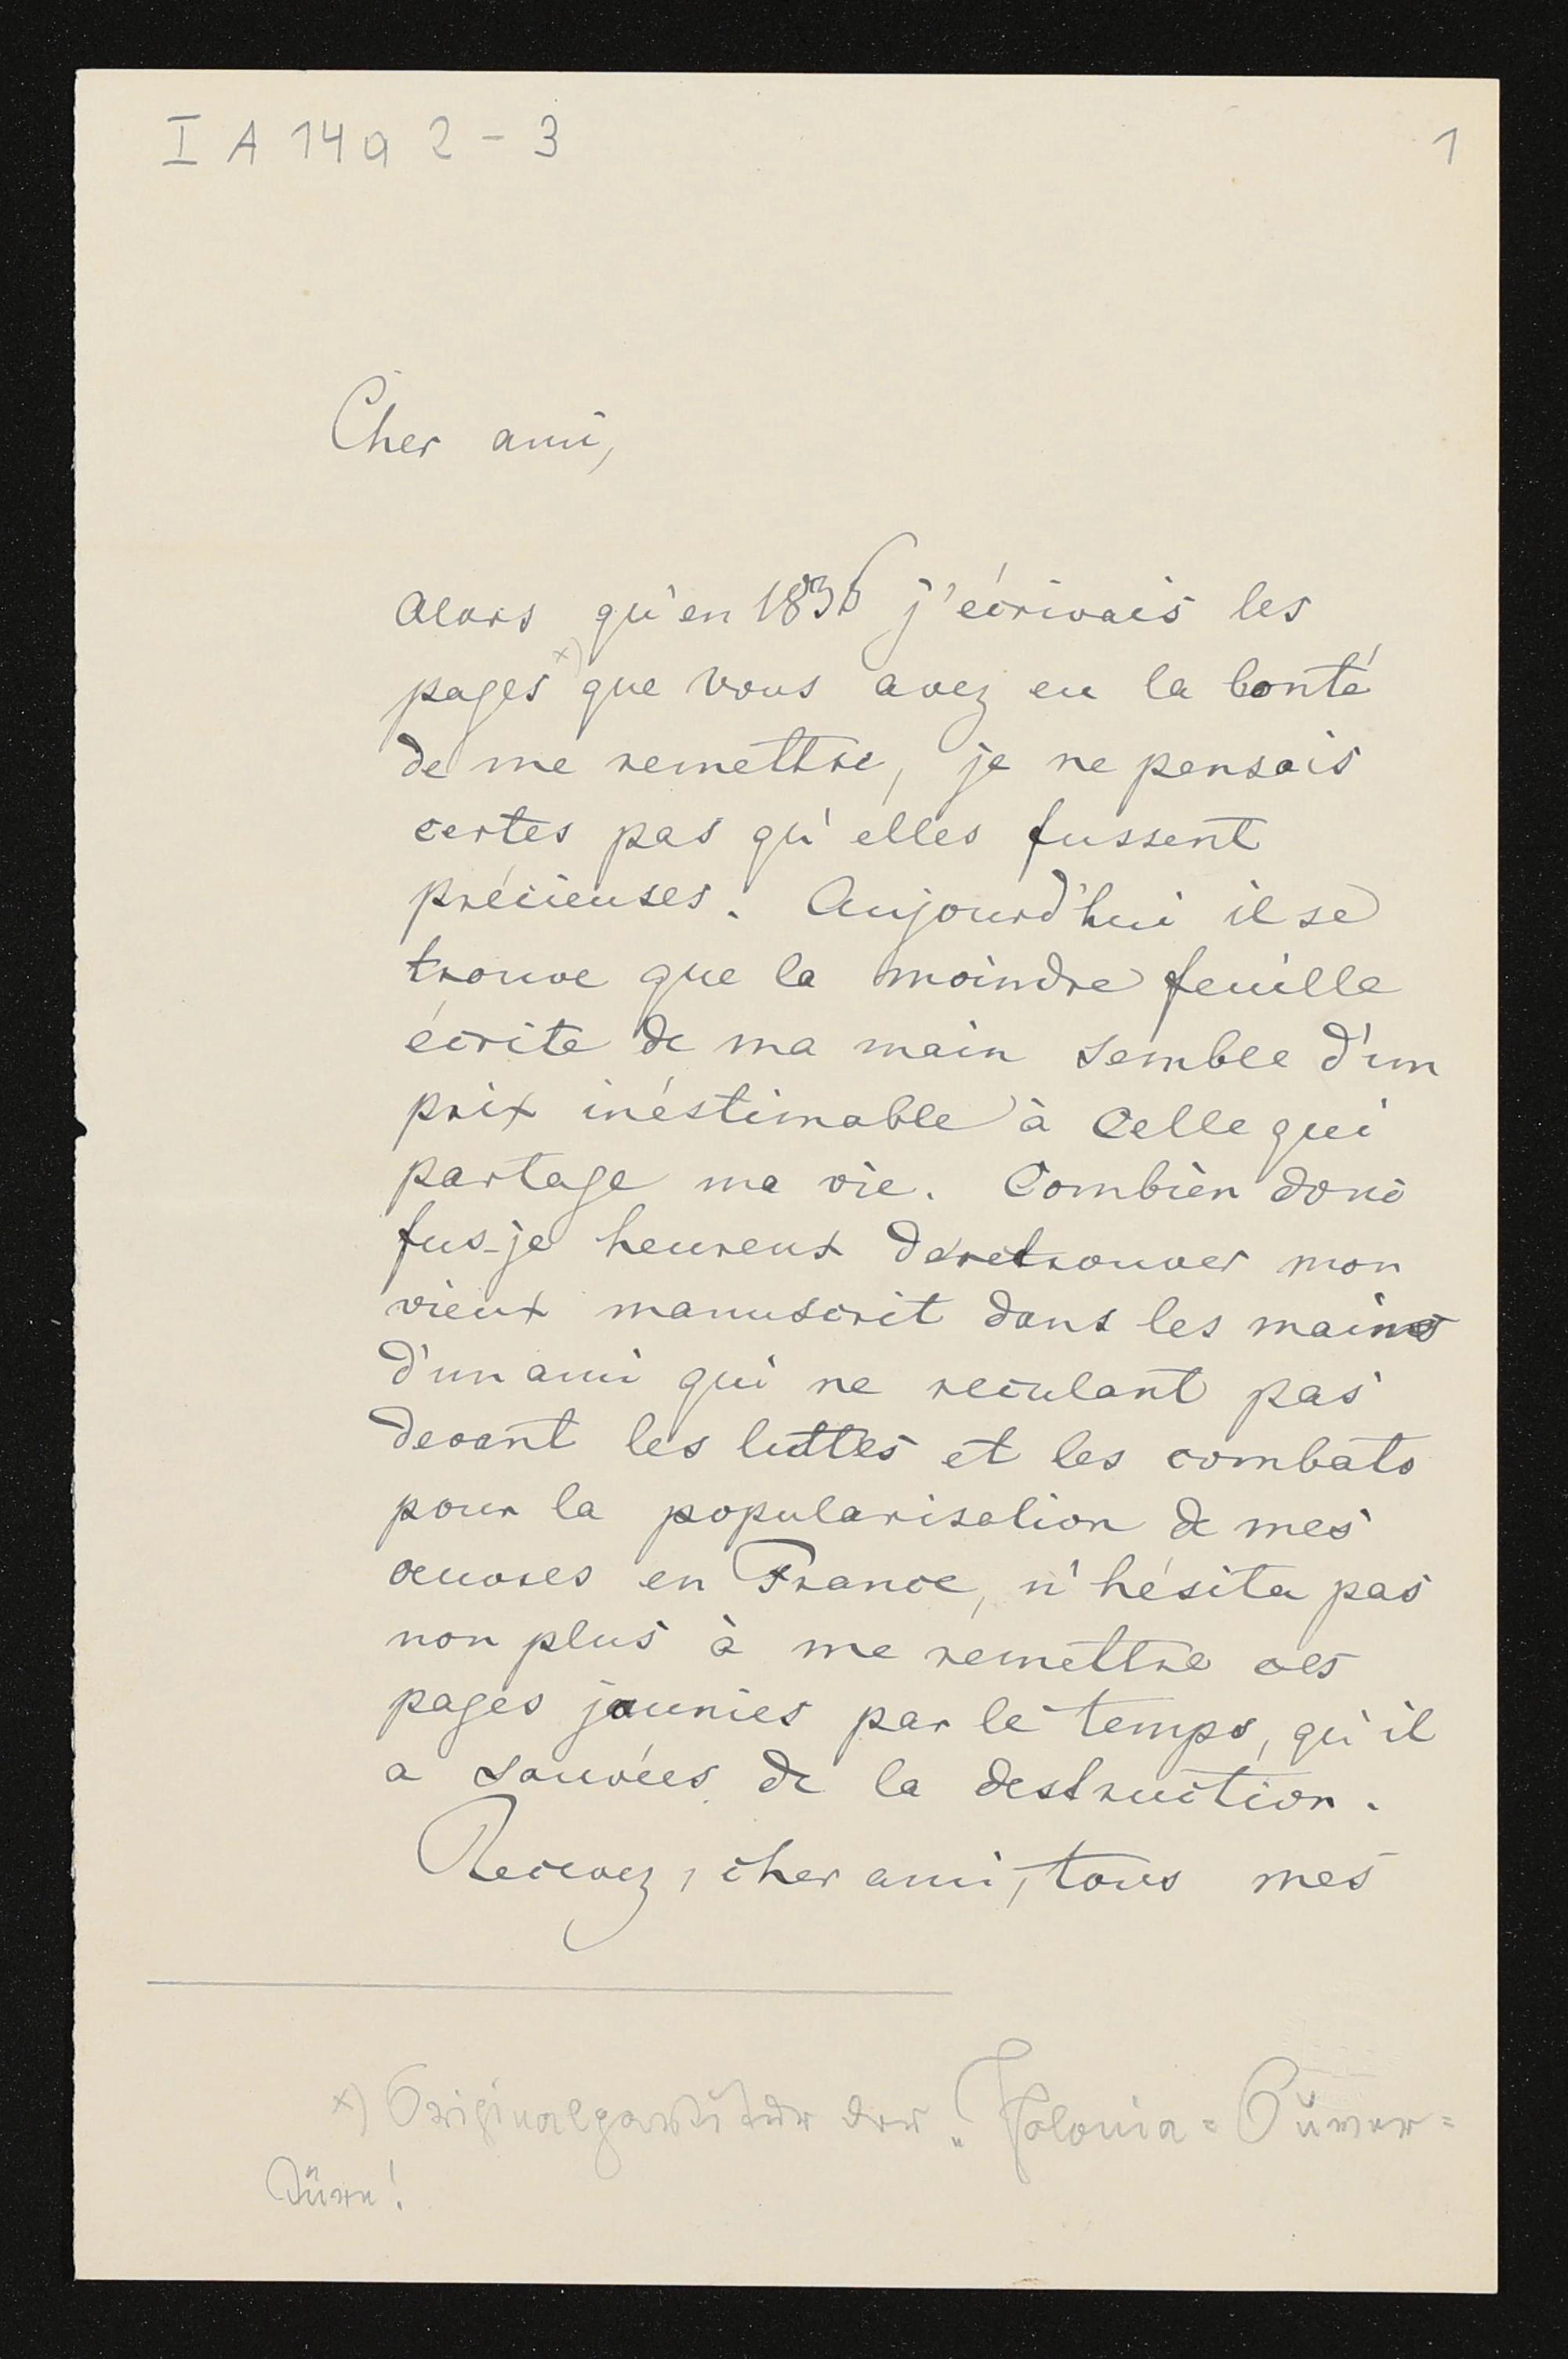 I A 14 a 2 - 3
1
Cher ami,
Alors qu'en 1836 j'écrivais les
pages x) que vous avez eu la bonté
de me remettre, je ne pensais
certes pas qu'elles fussent
précieuses. Aujourd'hui il se
trouve que la moindre feuille
écrite de ma main semble d'un
prix inéstimable à Celle qui
partage ma vie. Combien donc
fus-je heureux de retrouver mon
vieux manuscrit dans les mains
d'un ami qui ne reculant pas
devant les luttes et les combats
pour la popularisation de mes
œuvres en France, n'hésita pas
non plus à me remettre ces
pages jaunies par le temps, qu'il
a sauvées de la destruction.
Recevez, cher ami, tous mes
x) Originalpartitur der „Polonia=Ouver=
türe!